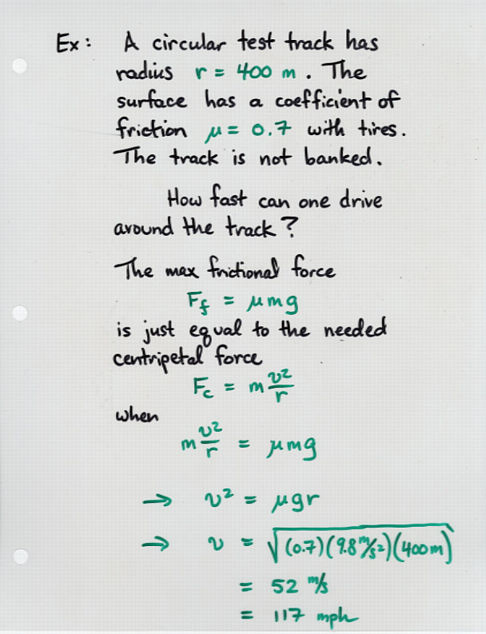 Ex: A circular test track has
radius r = 400 m. The
surface has a coefficient of
friction μ = 0.7 with tires.
The track is not banked.
How fast can one drive
around the track?
The max frictional force
F_f = μmg
is just equal to the needed
centripetal force
F_c = m v²/r
when
m v²/r = μmg
→ v² = μgr
→ v = √(0.7)(9.8 m/s²)(400 m)
= 52 m/s
= 117 mph